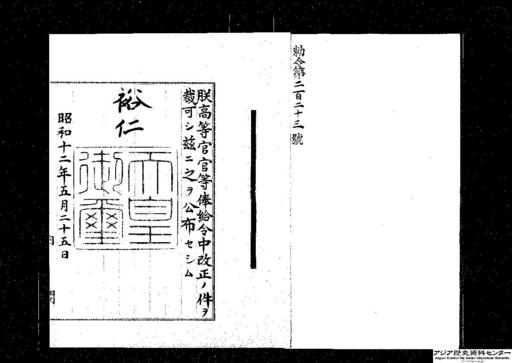 勅令第二百二十三號
朕高等官官等俸給令中改正ノ件ヲ
裁可シ茲ニ之ヲ公布セシム
裕仁
天皇
御璽
昭和十二年五月二十五日
アジア歴史資料センター
Japan Center for Asian Historical Records